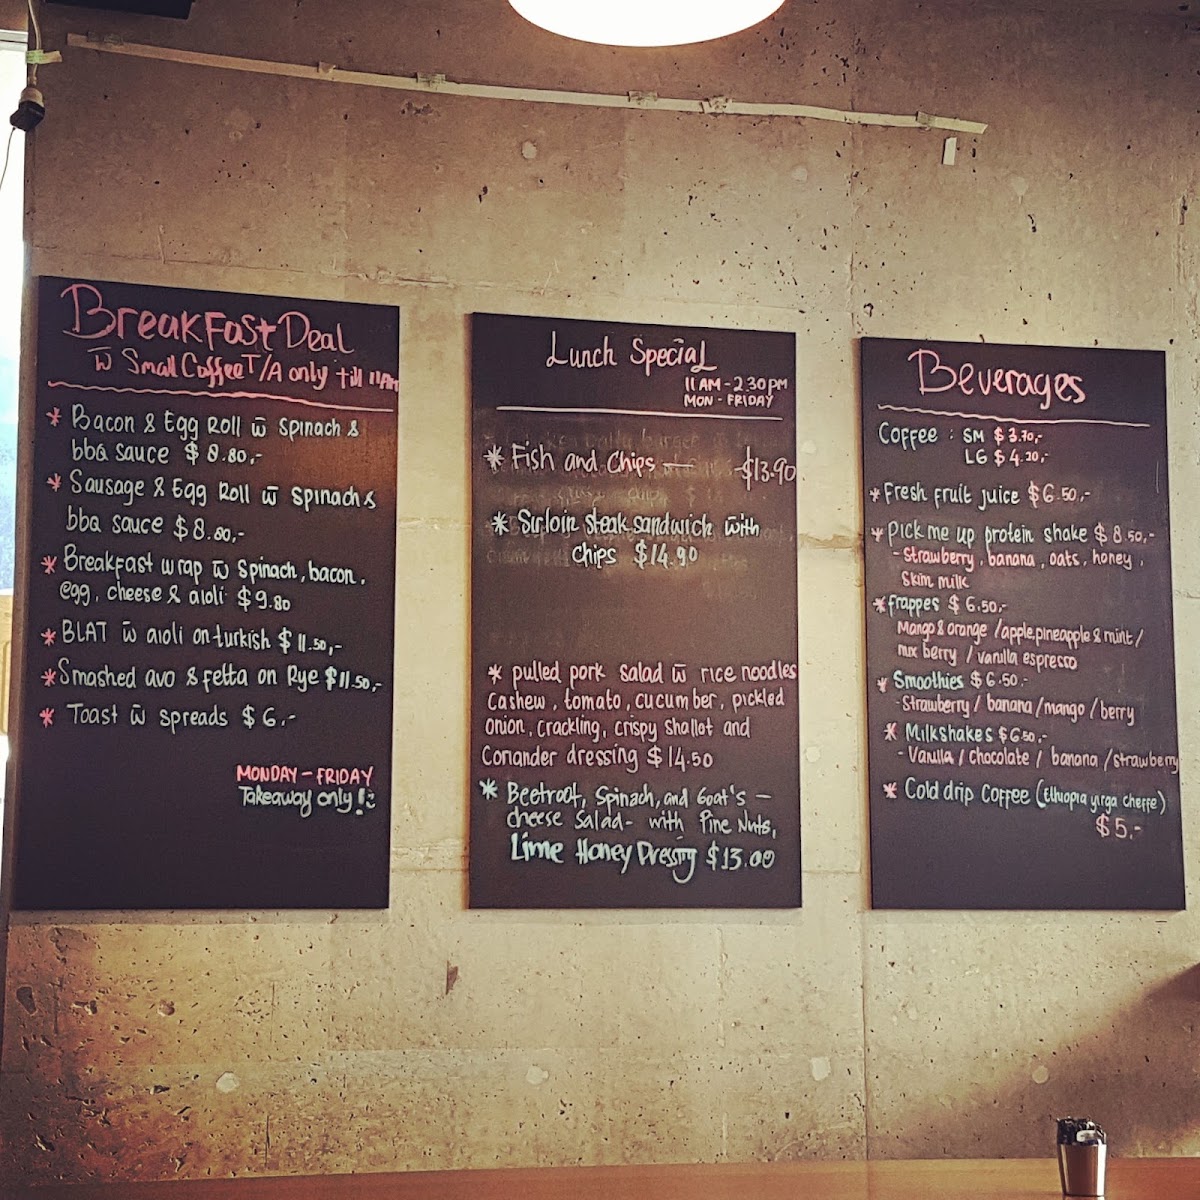 BreakFast Deal
w̄ Small Coffee T/A only till 11AM
* Bacon & Egg Roll w̄ spinach &
bbq sauce $8.80,-
* Sausage & Egg Roll w̄ spinach &
bbq sauce $8.80,-
* Breakfast wrap w̄ spinach, bacon,
egg, cheese & aioli $9.80
* BLAT w̄ aioli on turkish $11.50,-
* Smashed avo & fetta on Rye $11.50,-
* Toast w̄ spreads $6,-
MONDAY - FRIDAY
Takeaway only!
Lunch Special
11AM - 2.30PM
MON - FRIDAY
* Fish and Chips — -$13.90
* Sirloin steak sandwich with
chips $14.90
* pulled pork salad w̄ rice noodles
Cashew, tomato, cucumber, pickled
onion, crackling, crispy shallot and
Coriander dressing $14.50
* Beetroot, Spinach, and Goat's -
cheese Salad - with Pine Nuts,
Lime Honey Dressing $13.00
Beverages
Coffee : SM $3.70,-
LG $4.20,-
* Fresh fruit juice $6.50,-
* Pick me up protein shake $8.50,-
- Strawberry, banana, oats, honey,
Skim milk
* frappes $6.50,-
Mango & orange / apple, pineapple & mint /
mix berry / vanilla espresso
* Smoothies $6.50,-
- Strawberry / banana / mango / berry
* Milkshakes $6.50,-
- Vanilla / chocolate / banana / strawberry
* Cold drip Coffee (Ethiopia yirga cheffe)
$5,-